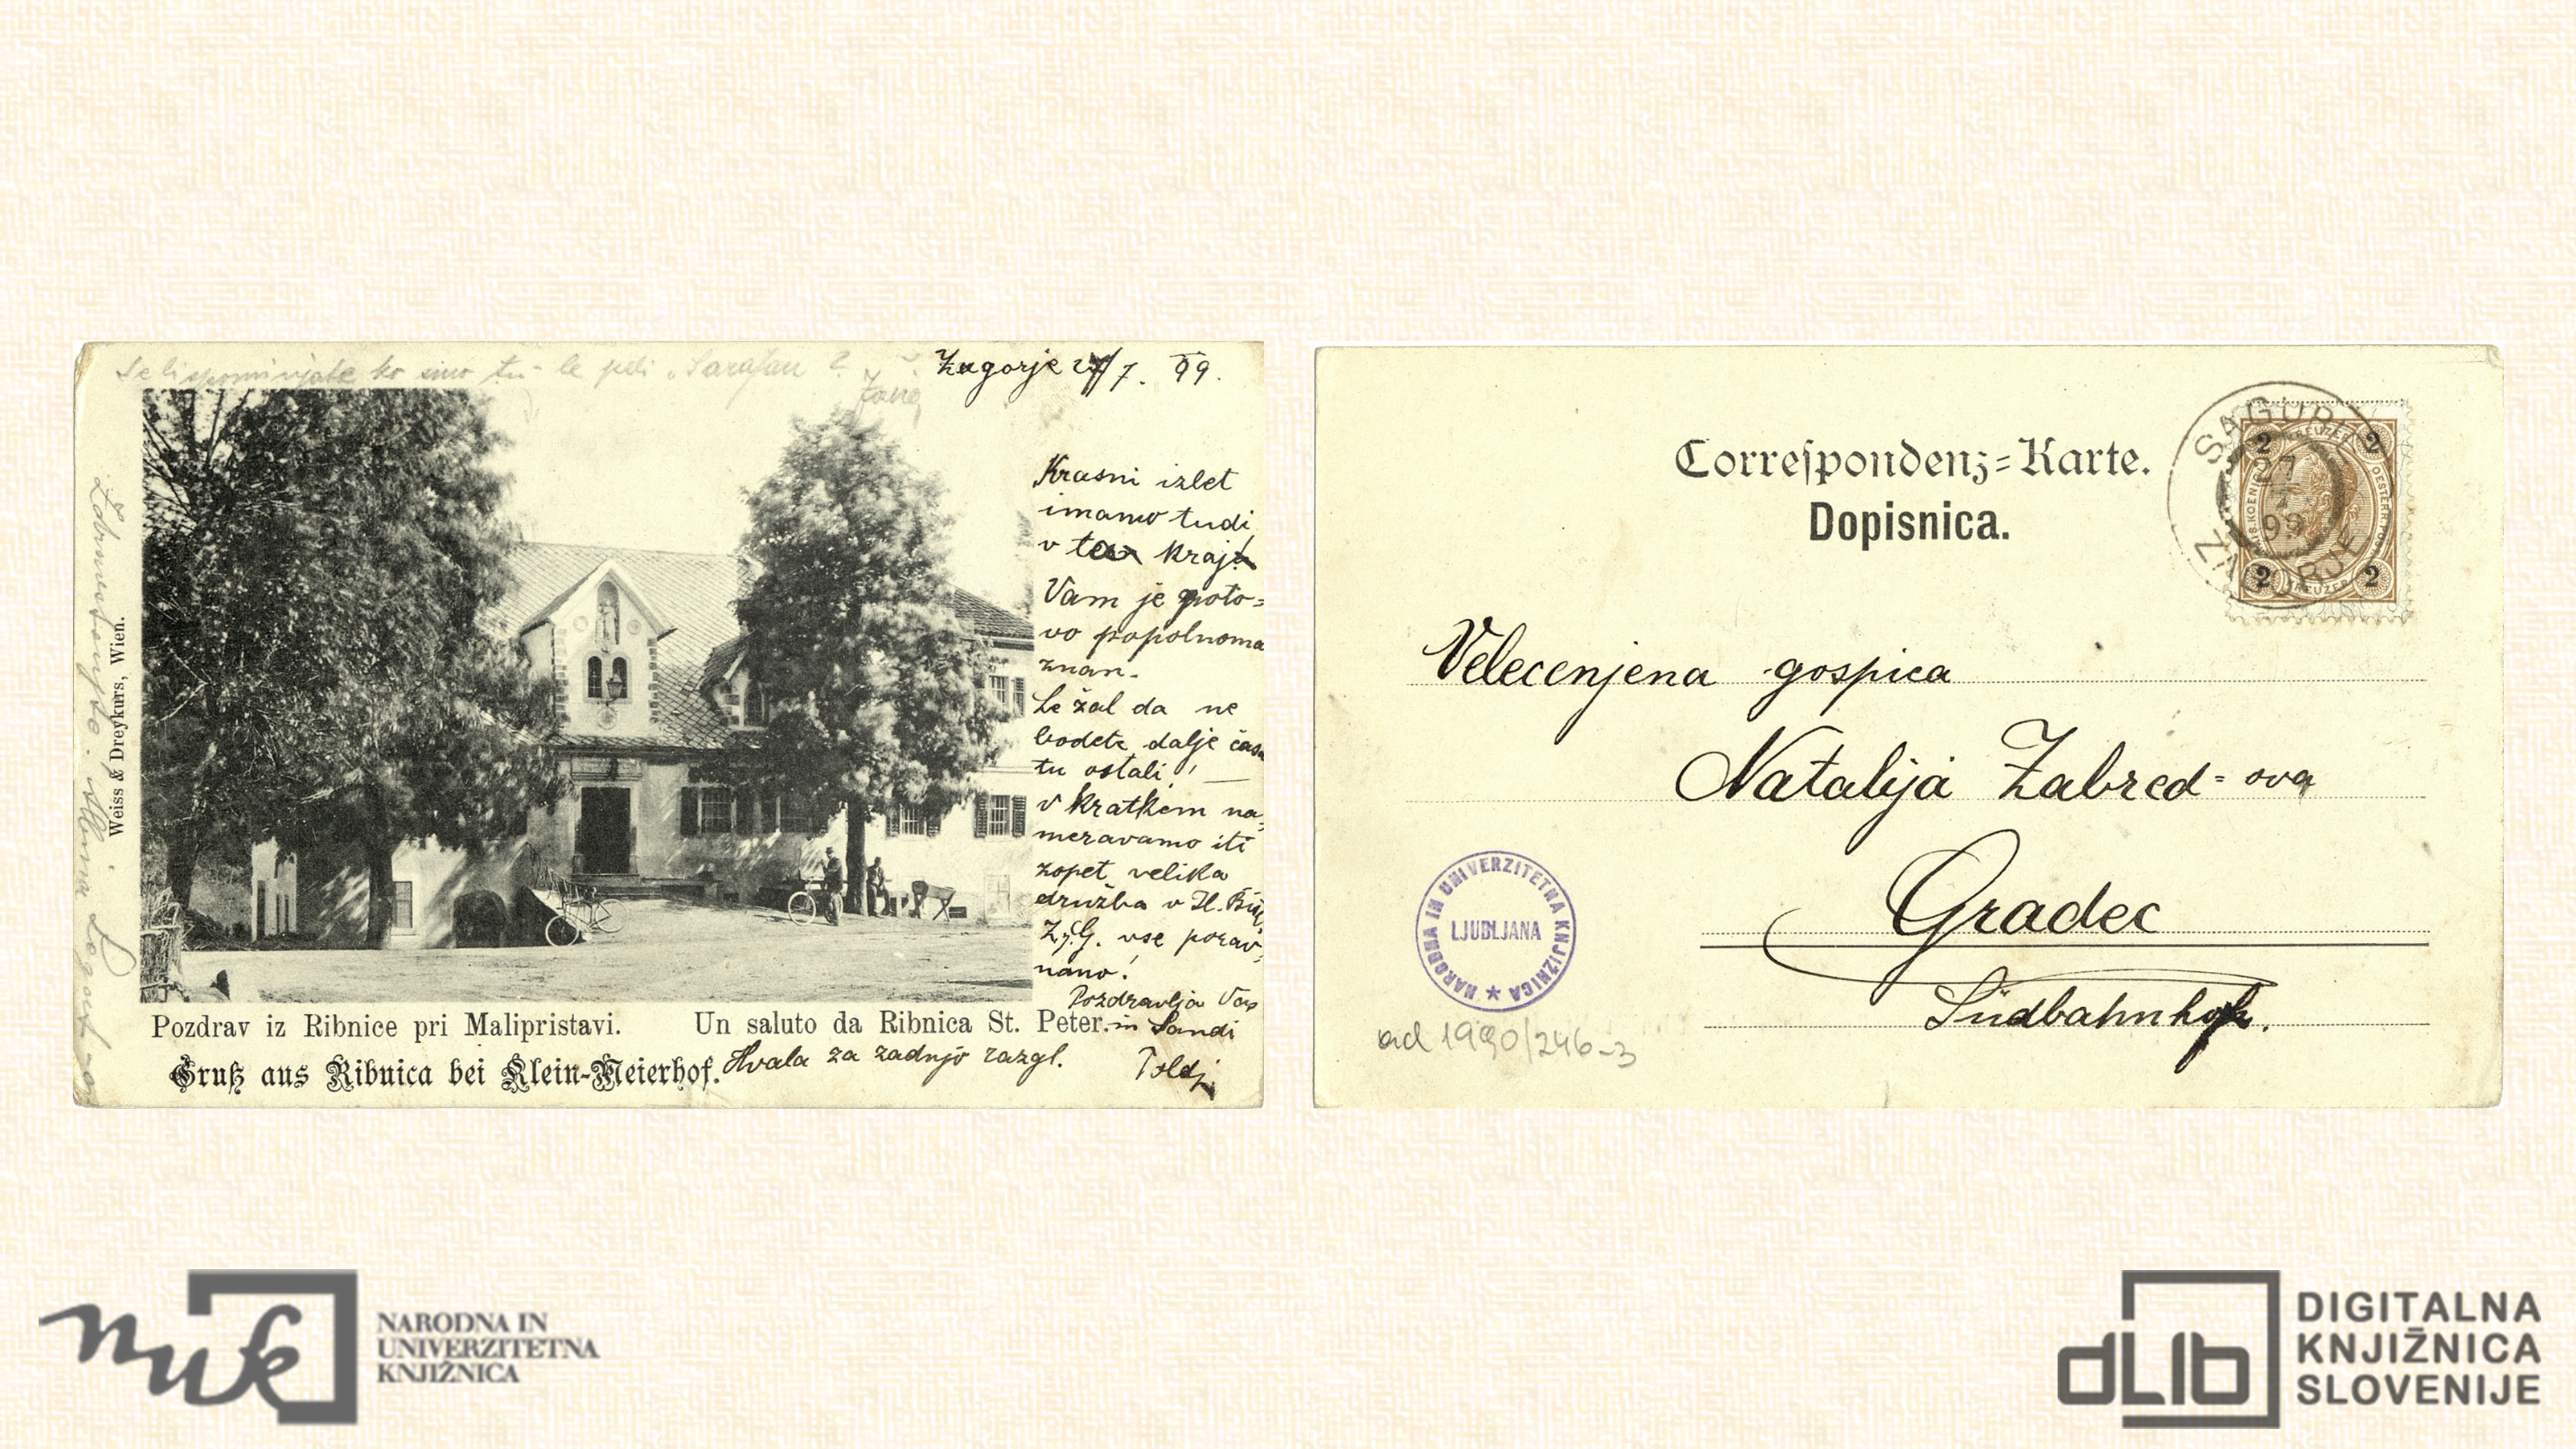 Se li spominjate ko smo tu-le peli „Sarafan"?
Zagorje 27/7. 99.
Krasni izlet
imamo tudi
v ta kraj
Vam je goto=
vo popolnoma
znan.
Le žal da ne
bodete dalje časa
tu ostali! —
V kratkem na=
meravamo iti
zopet velika
družba v Il. Bist.
Z. G. vse porav=
nano!
Pozdravlja Vas
in Sandi
Poldi
Hvala za zadnjo razgl.
Weiss & Dreykurs, Wien.
Pozdrav iz Ribnice pri Malipristavi.
Un saluto da Ribnica St. Peter.
Gruß aus Ribnica bei Klein-Meierhof.
Correspondenz=Karte.
Dopisnica.
SAGURIE
27
7
99
ZAGORJE
2 KREUZER 2
2 KREUZER 2
Velecenjena gospica
Natalija Zabred=ova
Gradec
Südbahnhof.
NARODNA IN UNIVERZITETNA KNJIŽNICA
LJUBLJANA
ad 1990/246-3
nuk
NARODNA IN
UNIVERZITETNA
KNJIŽNICA
dLib
DIGITALNA
KNJIŽNICA
SLOVENIJE